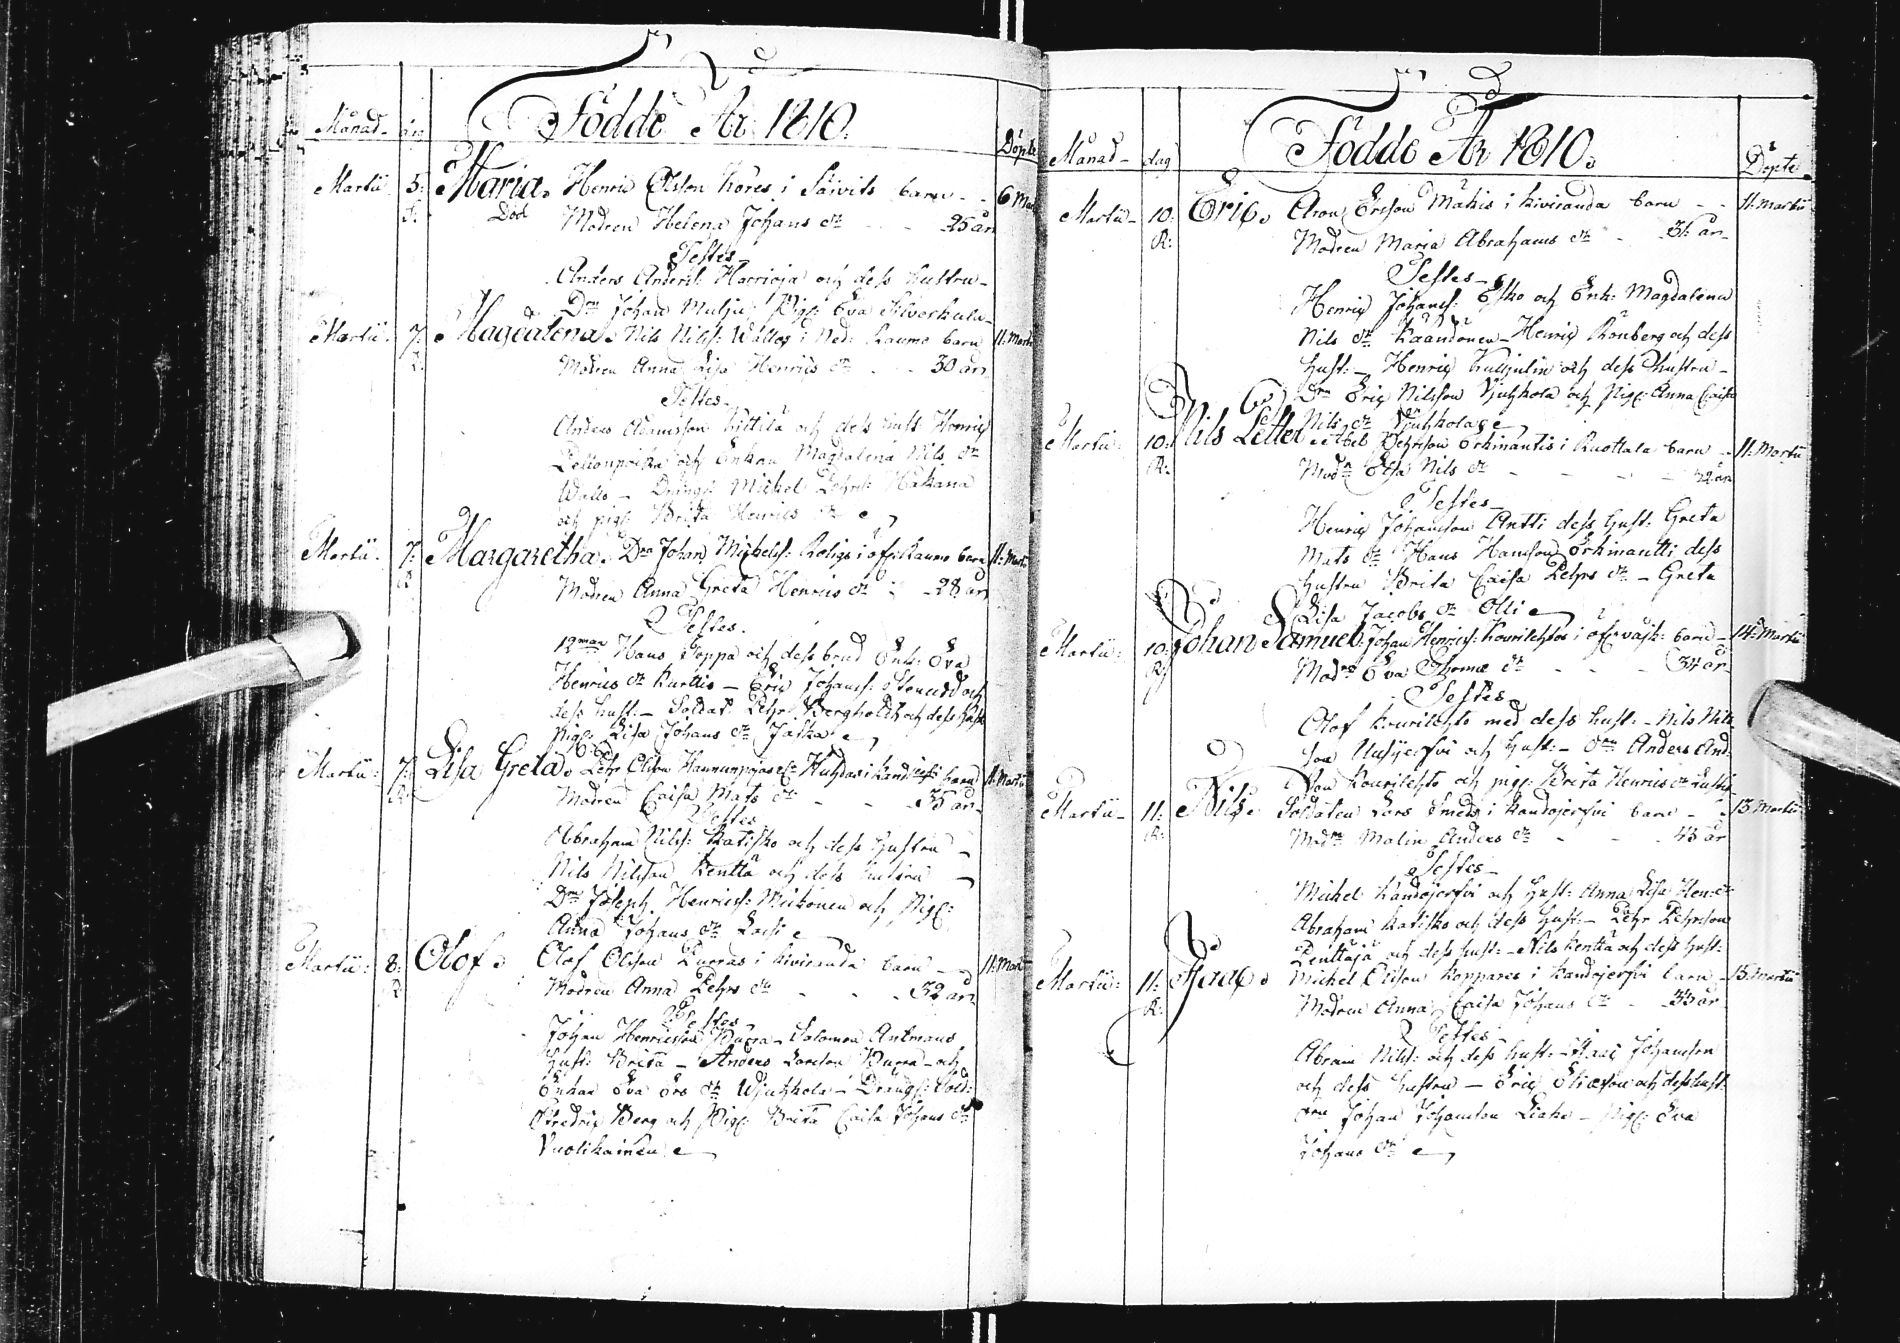 Månad dag Födde År 1810. Döpte
Martii 5: Maria. Henric Olsson kores i Säivits barn 6 Mart
Död Modren Helena Johans dr 25 år
Testes
Anders Anders: Harrioja och dess hustru
Drn Johan Mulju Pig: Eva Silverhula
Martii 7: Magdalena. Nils Nilss: Wallos i Ned: Raumo barn 11: Martii
Modren Anna Lisa Henrics dr 30 år
Testes
Anders Adamsson Kittilä och dess hust Henric
och Enkan Magdalena Nils dr
Wallo Drängs: Michel Pehrs: Hakana
och pig: Brita Henrics dr
Martii 7: Margaretha. Drn Johan Michels: Roligs i öfre Raumo barn 11: Mart
R
Modren Anna Greta Henrics dr 28 år
Testes.
12man Hans Poppa och dess brud Enk: Eva
Henrics dr Kurttio Eric Johans: Stenudd och
dess hust: Soldat: Pehr Bergholdt och dess hust
Pig: Lisa Johans dr Jaska
Martii: 7: Lisa Greta. Pehr Olsson barn 11: Martii
R:
Modren Caisa Mats dr 35 år
Testes
Abraham Nilss: Ratisko och dess hustru
Nils Nilsson Kenttä och dess hustru
Drn Joseph Henricss: Miikonen och Pig:
Anna Johans dr Lassi
Martii: 8: Olof. Olof Olsson Purras i kiviranda barn 11: Mart
R
Modren Anna Pehrs dr 32 år
Testes
Johan Henricsson Purra Salomon Antmans
hust: Brita Anders Larsson Purra och
Enkan Eva Ers dr Wiuhkola Drängs: Sold:
Fredric Berg och Pig: Brita Caisa Johans dr
Vuolikainen
Månad dag Födde År 1810. Döpte
Martii 10: Eric. Aron Ersson Mäkis i kiviranda barn 11: Martii
R:
Modren Maria Abrahams dr 31: år
Testes
Henric Johanss: Esko och Enk: Magdalena
Nils dr Kaandonen Henric Rönberg och dess
hust: Henric Kulljulin och dess hustru
Drn Eric Nilsson Vjuhkola och Pig: Anna Caisa
Nils dr Vjuhkola
Martii: 10: Nils Petter Abel Pehrsson Erkinanttis i Ruottala barn 11: Martii
R:
Modn Elsa Nils dr 32 år
Testes
Henric Johansson Antti dess hust: Greta
Mats dr Hans Hansson Erkinantti dess
hustru Brita Caisa Pehrs dr Greta
Lisa Jacobs dr Olli
Martii: 10: Johan Samuel: Johan Henrics: Kourilehtos i öfr: barn 14: Martii
R:
Modrn Eva Thomæ dr 34 år
Testes
Olof Kourilehto med dess hust: Nils Nils
son och hust: drn Anders And:
son Kourilehto och pig: Brita Henrics dr
Martii 11: Nils. Soldaten Lars Smeds i Kandojerfvi barn 13 Martii
R:
Modrn Malin Anders dr 43 år
Testes
Michel Kandojerfvi och hust: Anna Lisa Hen: dr
Abraham Ratisko och dess hust: Pehr Pehrsson
Penttäjä och dess hust: Nils Kenttä och dess hust:
Martii: 11: Isaac. Michel Olsson Koppares i Kandojerfvi barn 15: Martii
R:
Modren Anna Caisa Johans dr 33 år
Testes
Abram Nilss: och dess hust: Isaac Johansson
och dess hustru Eric Ericsson och dess hust:
drn Johan Johansson Liako pig: Eva
Johans dr